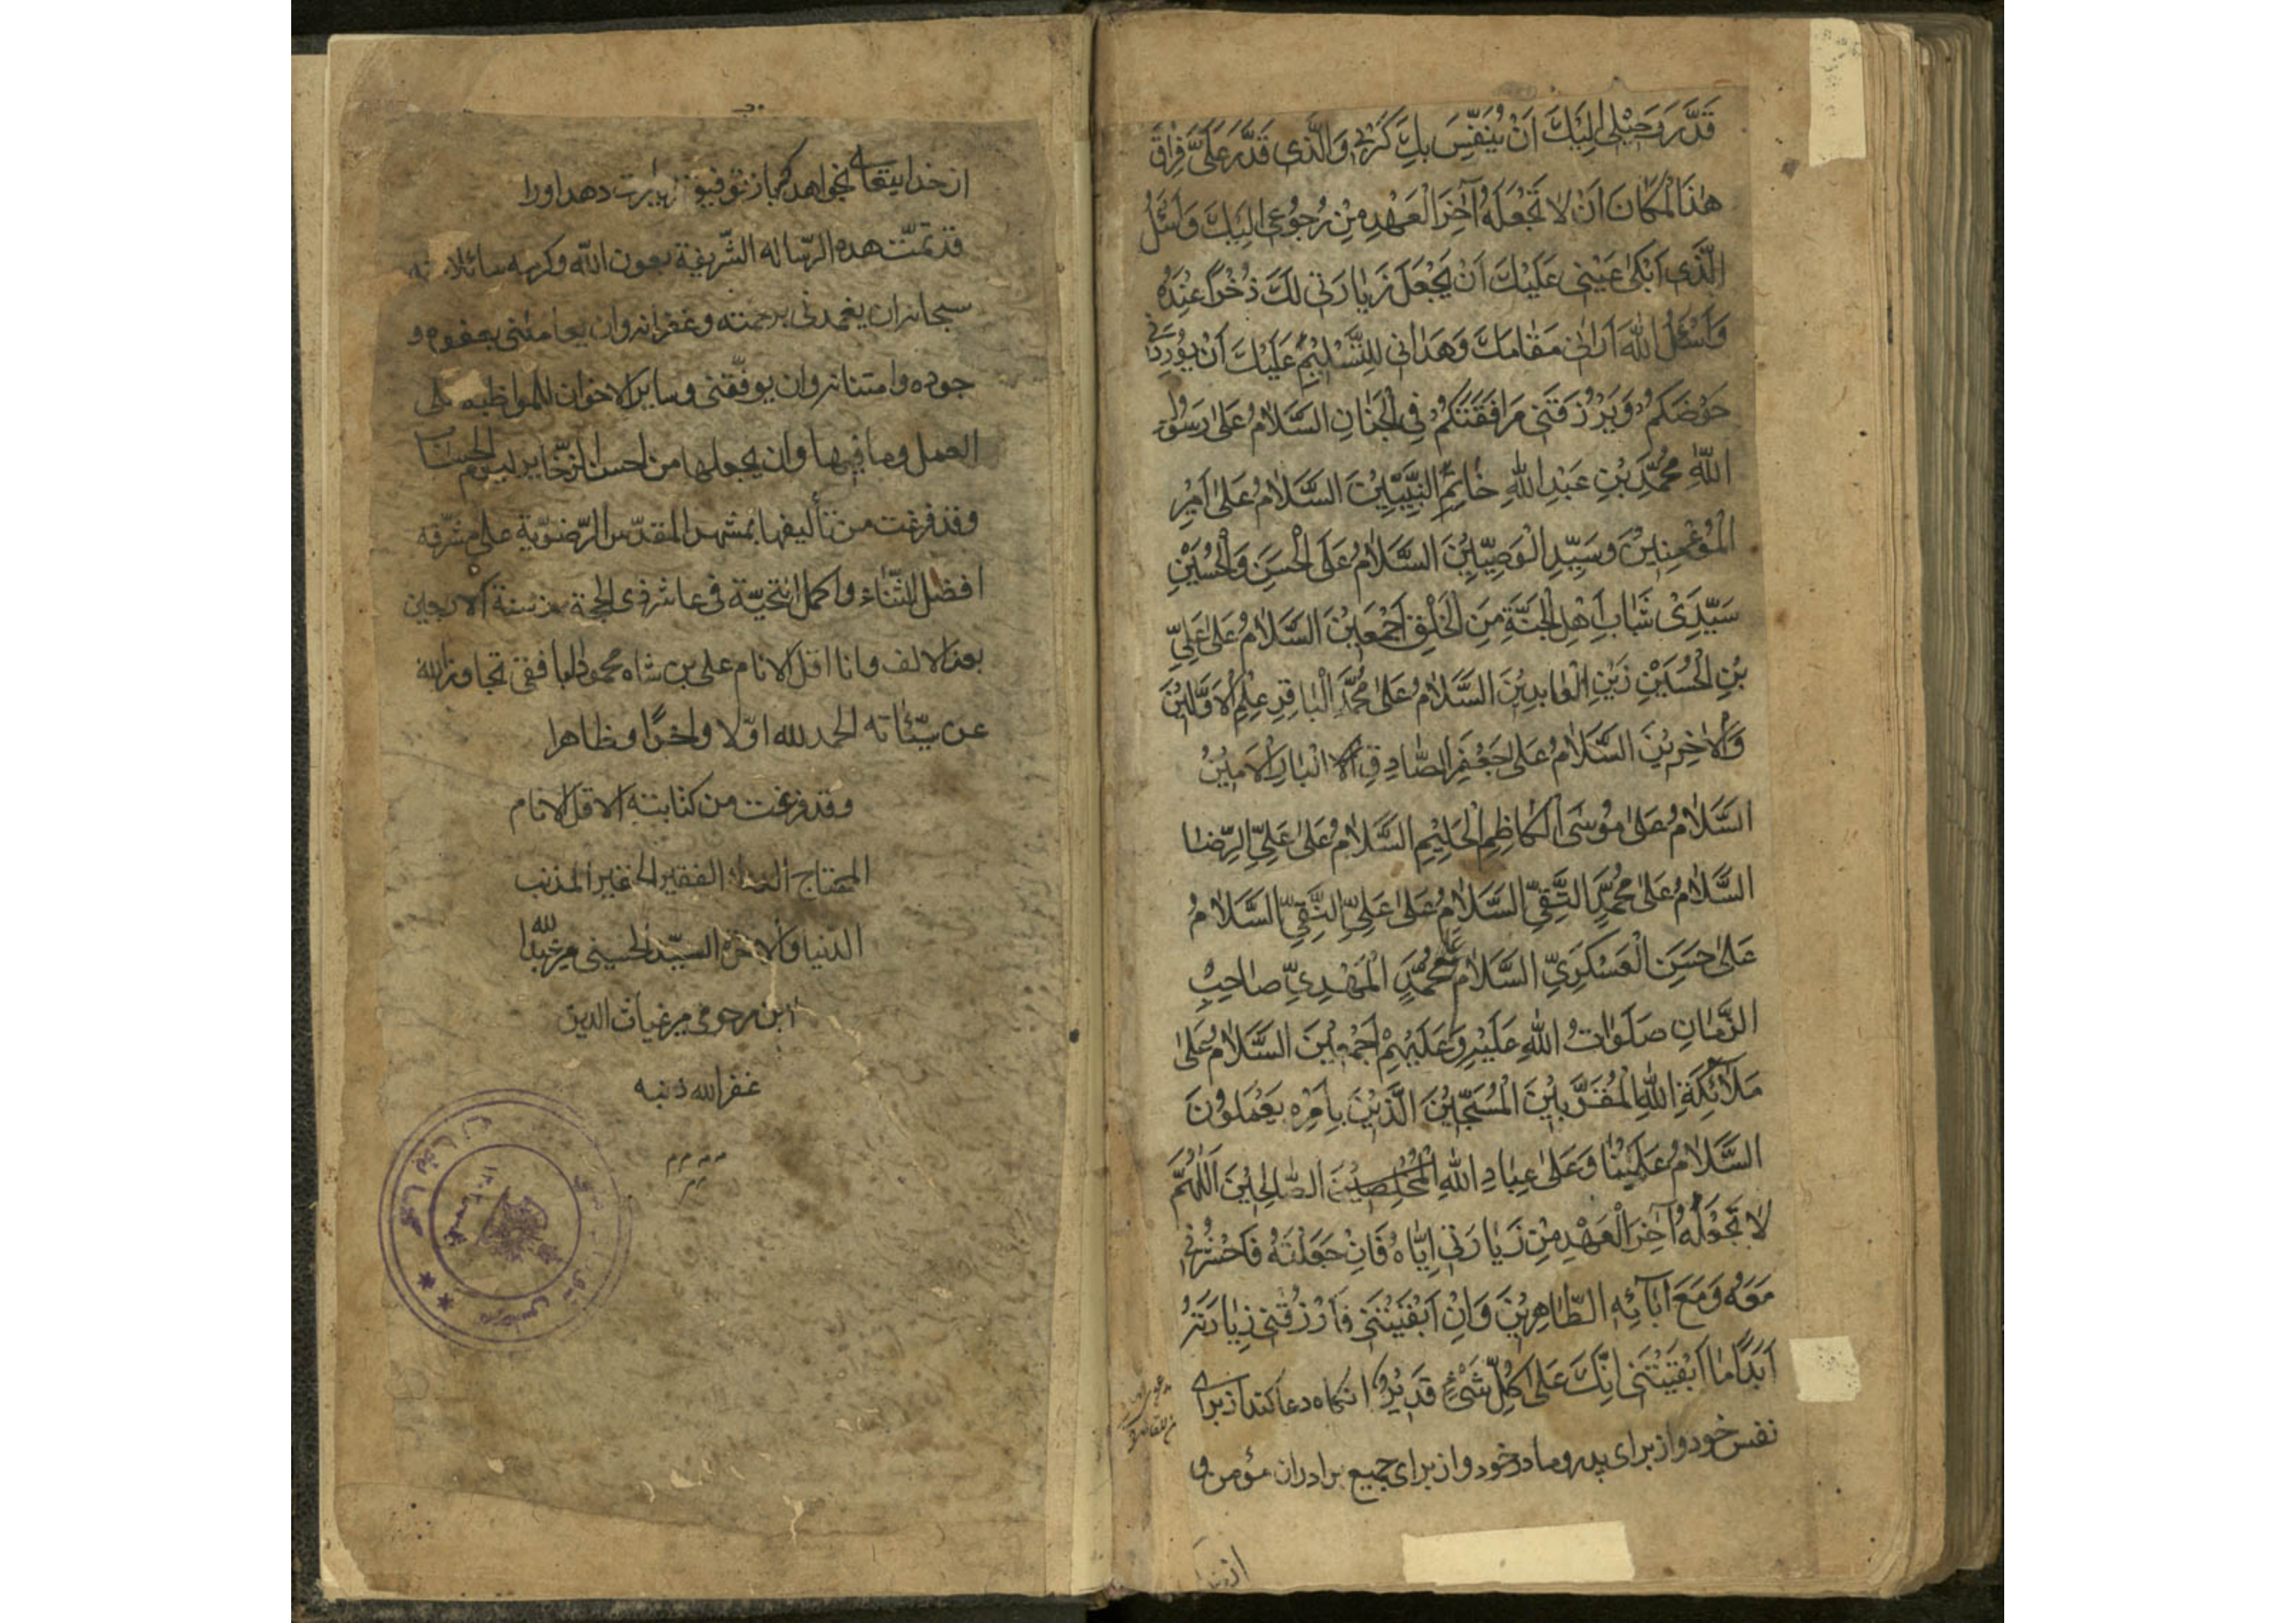 قَدَّرَ رَحِيْلِي اِلَيْكَ اَنْ يُنَفِّسَ بِكَ كَرْبِي وَالَّذِي قَدَّرَ عَلَيَّ فِرَاقَ
هٰذَا الْمَكَانَ اَنْ لَا تَجْعَلَهُ آخِرَ الْعَهْدِ مِنْ رُجُوعِي اِلَيْكَ وَاَسْئَلُ
الَّذِي اَبْكىٰ عَيْنِي عَلَيْكَ اَنْ يَجْعَلَ زِيَارَتِي لَكَ ذُخْرًا عِنْدَهُ
وَاَسْئَلُ اللهَ اَرَانِي مَقَامَكَ وَهَدَانِي لِلتَّسْلِيْمِ عَلَيْكَ اَنْ يُوْرِدَنِي
حَوْضَكُمْ وَيَرْزُقَنِي مَرَافَقَتَكُمْ فِي الْجِنَانِ السَّلَامُ عَلىٰ رَسُوْلِ
اللهِ مُحَمَّدِ بْنِ عَبْدِ اللهِ خَاتِمِ النَّبِيِّيْنَ السَّلَامُ عَلىٰ اَمِيْرِ
الْمُؤْمِنِيْنَ وَسَيِّدِ الْوَصِيِّيْنَ السَّلَامُ عَلَى الْحَسَنِ وَالْحُسَيْنِ
سَيِّدَيْ شَبَابِ اَهْلِ الْجَنَّةِ مِنَ الْخَلْقِ اَجْمَعِيْنَ السَّلَامُ عَلىٰ عَلِيِّ
بْنِ الْحُسَيْنِ زَيْنِ الْعَابِدِيْنَ السَّلَامُ عَلىٰ مُحَمَّدِ الْبَاقِرِ عِلْمِ الْاَوَّلِيْنَ
وَالْاٰخِرِيْنَ السَّلَامُ عَلىٰ جَعْفَرِ الصَّادِقِ الْاَمِيْنِ
السَّلَامُ عَلىٰ مُوْسَى الْكَاظِمِ الْحَلِيْمِ السَّلَامُ عَلىٰ عَلِيِّ الرِّضَا
السَّلَامُ عَلىٰ مُحَمَّدِ التَّقِيِّ السَّلَامُ عَلىٰ عَلِيِّ النَّقِيِّ السَّلَامُ
عَلىٰ حَسَنِ الْعَسْكَرِيِّ السَّلَامُ عَلىٰ مُحَمَّدِ الْمَهْدِيِّ صَاحِبِ
الزَّمَانِ صَلَوَاتُ اللهِ عَلَيْهِ وَعَلَيْهِمْ اَجْمَعِيْنَ السَّلَامُ عَلىٰ
مَلَآئِكَةِ اللهِ الْمُقَرَّبِيْنَ الْمُسَبِّحِيْنَ الَّذِيْنَ بِاَمْرِهِ يَعْمَلُوْنَ
السَّلَامُ عَلَيْنَا وَعَلىٰ عِبَادِ اللهِ الْمُخْلِصِيْنَ الصَّالِحِيْنَ اَللّٰهُمَّ
لَا تَجْعَلْهُ آخِرَ الْعَهْدِ مِنْ زِيَارَتِي اِيَّاهُ فَاِنْ جَعَلْتَهُ فَاحْشُرْنِي
مَعَهُ وَمَعَ آبَآئِهِ الطَّاهِرِيْنَ وَاِنْ اَبْقَيْتَنِي فَارْزُقْنِي زِيَارَتَهُ
اَبَدًا مَا اَبْقَيْتَنِي اِنَّكَ عَلىٰ كُلِّ شَيْءٍ قَدِيْرٌ انکاه دعا کند از برای
نفس خود و از برای پدر و مادر خود و از برای جمیع برادران مؤمن و
از خدا
از خدایتعالی بخواهد که باز توفیق زیارت دهد او را
قد تمّت هذه الرّساله الشّريفة بعون الله وكرمه سائلا منه
سبحانه ان يغمدنی برحمته وغفرانه وان يعاملنی بعفوه و
جوده وامتنانه وان يوفّقنی وساير الاخوان للمواظبه علی
العمل وما فيها وان يجعلها من احسن الذّخاير ليوم الحساب
وقد فرغت من تأليفها بمشهد المقدّس الرّضويّة علی مشرّفه
افضل الثّناء واكمل التحيّة فی عاشر ذی الحجة من سنة الاربعين
بعد الالف وانا اقل الانام علی بن شاه محمود البافقی تجاوز الله
عن سيّئاته الحمد لله اوّلا واخرًا وظاهرا
وقد فرغت من كتابته الاقل الانام
المحتاج الفقير الحقير المذنب
الدّنيا والاخرة السيّد الحسينی میر عبد الله
ابن مرحومی میر غياث الدين
غفر الله ذنبه